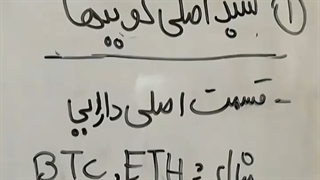 ① سبد اصلی کوینها
- قسمت اصلی دارایی
مثال : BTC, ETH